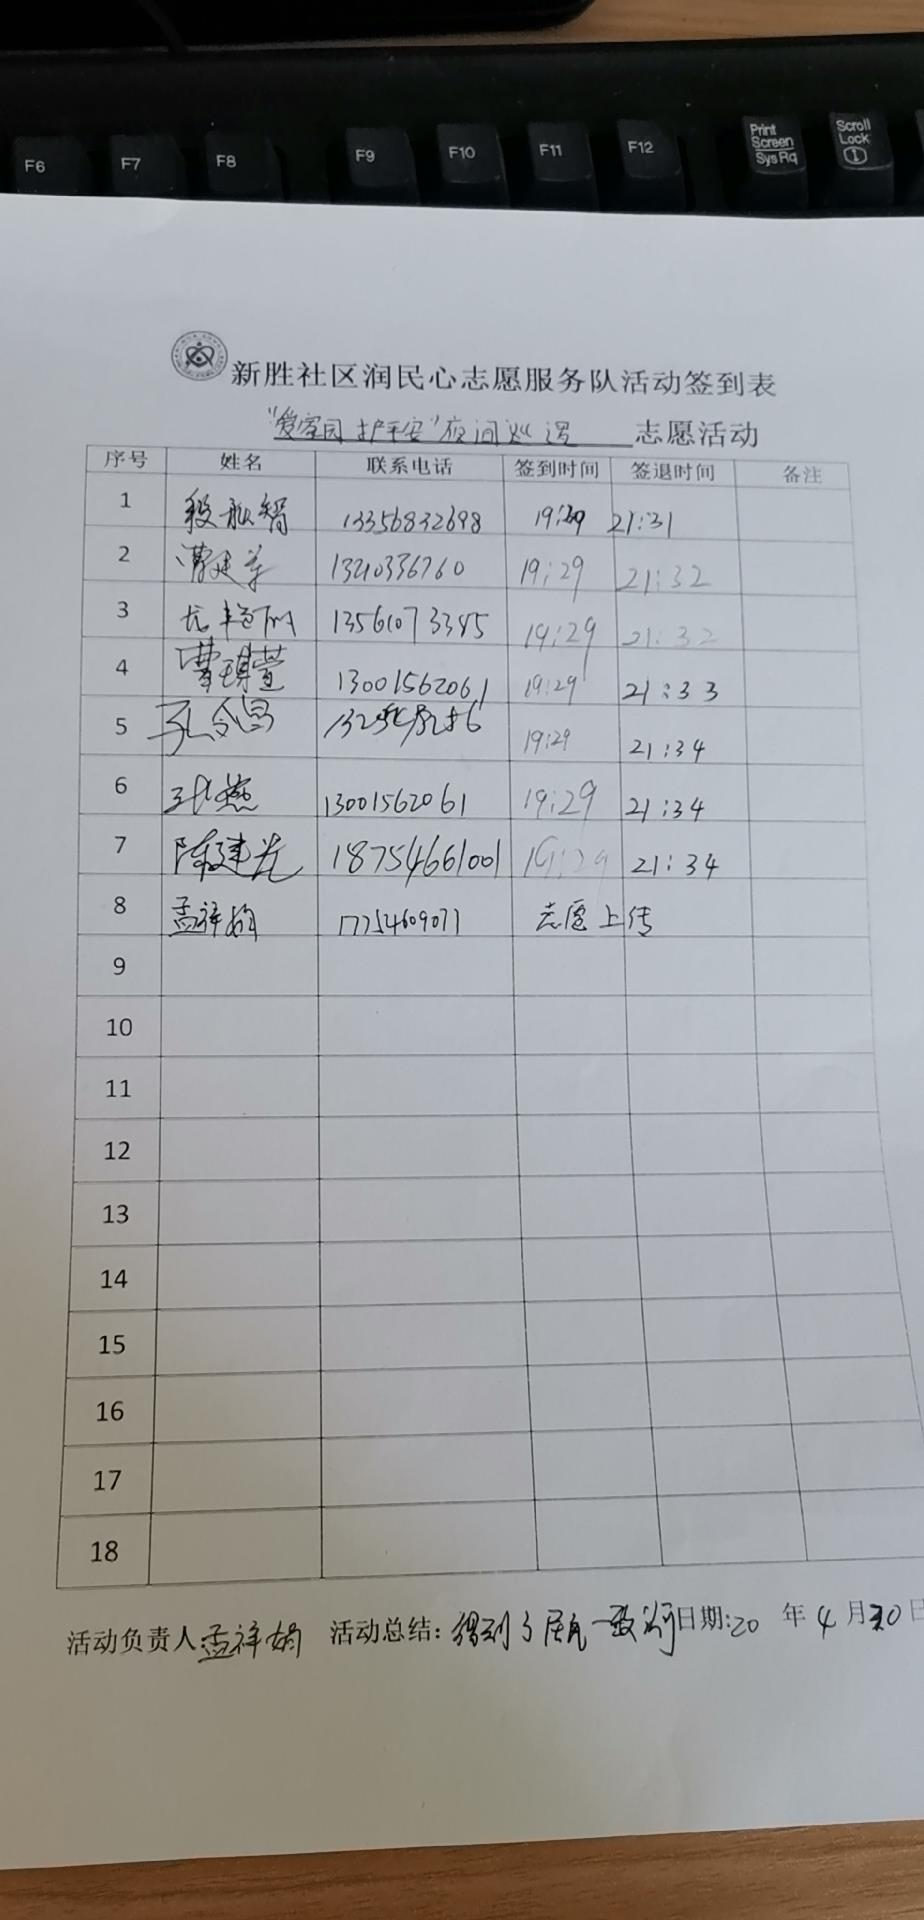 F6 F7 F8 F9 F10 F11 F12 Print Screen SysRq Scroll Lock
新胜社区润民心志愿服务队活动签到表
"爱家园护平安"夜间巡逻 志愿活动
序号 姓名 联系电话 签到时间 签退时间 备注
1 13356832698 19:29 21:31
2 曹建华 1320336760 19:29 21:32
3 尤艳丽 13561073345 19:29 21:32
4 曹琪萱 13001562061 19:29 21:33
5 孔令昌 19:29 21:34
6 张燕 13001562061 19:29 21:34
7 陈建光 18754661001 19:29 21:34
8 孟祥娟 17754609071 志愿上传
9
10
11
12
13
14
15
16
17
18
活动负责人 孟祥娟 活动总结: 得到了居民一致好 日期:20 年 4 月 30 日